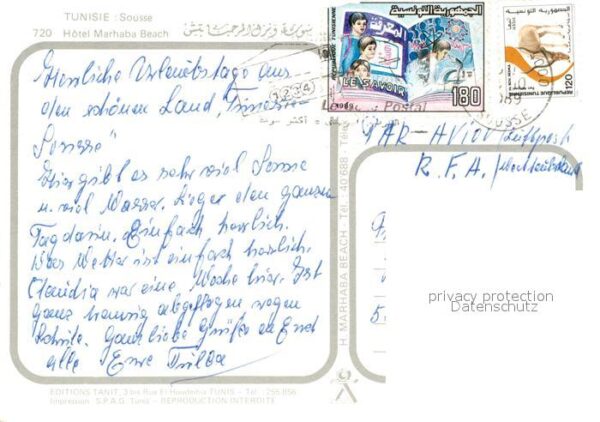 TUNISIE : Sousse
720 Hôtel Marhaba Beach
Herrliche Urlaubstage aus
den schönen Land, "Tunesien
Sousse"
Hier gibt es sehr viel Sonne
u. viel Wasser. Liegen den ganzen
Tag darin. Einfach herrlich.
Das Wetter ist einfach herrlich.
Claudia war eine Woche hier. Ist
ganz traurig abgeflogen wegen
Schule. Ganz liebe Grüße an Euch
alle Eure
EDITIONS TANIT, 3 bis Rue El Houdaibia TUNIS - Tél : 255.856
Impression : S.P.A.G. Tunis - REPRODUCTION INTERDITE
H. MARHABA BEACH - Tél. 40.688 - Télex
الجمهورية التونسية
المعرفة
REPUBLIQUE TUNISIENNE
LE SAVOIR
180
الجمهورية التونسية
REPUBLIQUE TUNISIENNE
120
1234
Postal
SOUSSE
PAR-AVION Luftpost
R.F.A. / Deutschland
5
privacy protection
Datenschutz